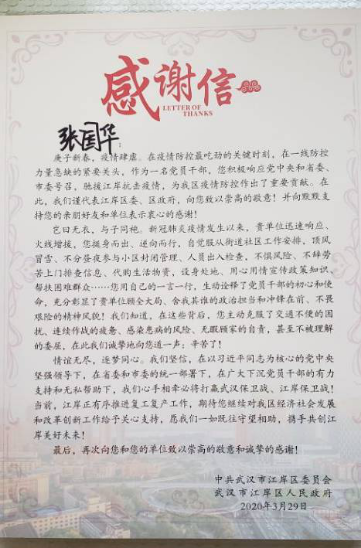 感谢信
LETTER OF
THANKS
张国华：
庚子新春，疫情肆虐。在疫情防控最吃劲的关键时刻，在一线防控
力量急缺的紧要关头，作为一名党员干部，您积极响应党中央和省委、
市委号召，驰援江岸抗击疫情，为我区疫情防控作出了重要贡献。在
此，我们谨代表江岸区委、区政府，向您致以崇高的敬意！并向默默支
持您的亲朋好友和单位表示衷心的感谢！
岂曰无衣，与子同袍。新冠肺炎疫情发生以来，贵单位迅速响应、
火线增援，您挺身而出、逆向而行，自觉服从街道社区工作安排，顶风
冒雪、不分昼夜参与小区封闭管理、人员出入检查，不惧风险、不辞劳
苦上门排查信息、代购生活物资，设身处地、用心用情宣传政策知识、
帮扶困难群众……您用自己的一言一行，生动诠释了党员干部的初心和使
命，充分彰显了贵单位顾全大局、舍我其谁的政治担当和冲锋在前、不畏
艰险的精神风貌！我们知道，在这些背后，您主动克服了交通不便的困
扰、连续作战的疲惫、感染患病的风险、无暇顾家的自责，甚至不被理解
的委屈，在此我们诚挚地向您道一声：辛苦了！
情谊无尽，逐梦同心。我们坚信，在以习近平同志为核心的党中央
坚强领导下，在省委和市委的统一部署下，在广大下沉党员干部的有力
支持和无私帮助下，我们心手相牵必将打赢武汉保卫战、江岸保卫战！
当前，江岸正有序推进复工复产工作，期待您继续对我区经济社会发展
和改革创新工作给予关心支持，愿我们一如既往守望相助，携手共创江
岸美好未来！
最后，再次向您和您的单位致以崇高的敬意和诚挚的感谢！
中共武汉市江岸区委员会
武汉市江岸区人民政府
2020年3月29日